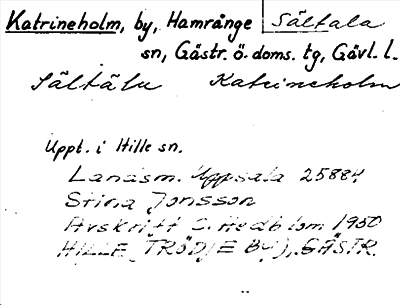 Katrineholm, by, Hamrånge Sältala
sn, Gästr. ö. doms. tg, Gävl. l.
Sältälu Katrineholm
Uppt. i Hille sn.
Landsm. Uppsala 25884
Stina Jonsson
Avskrift S. Hedblom 1950
HILLE (TRÖDJE BY), GÄSTR.